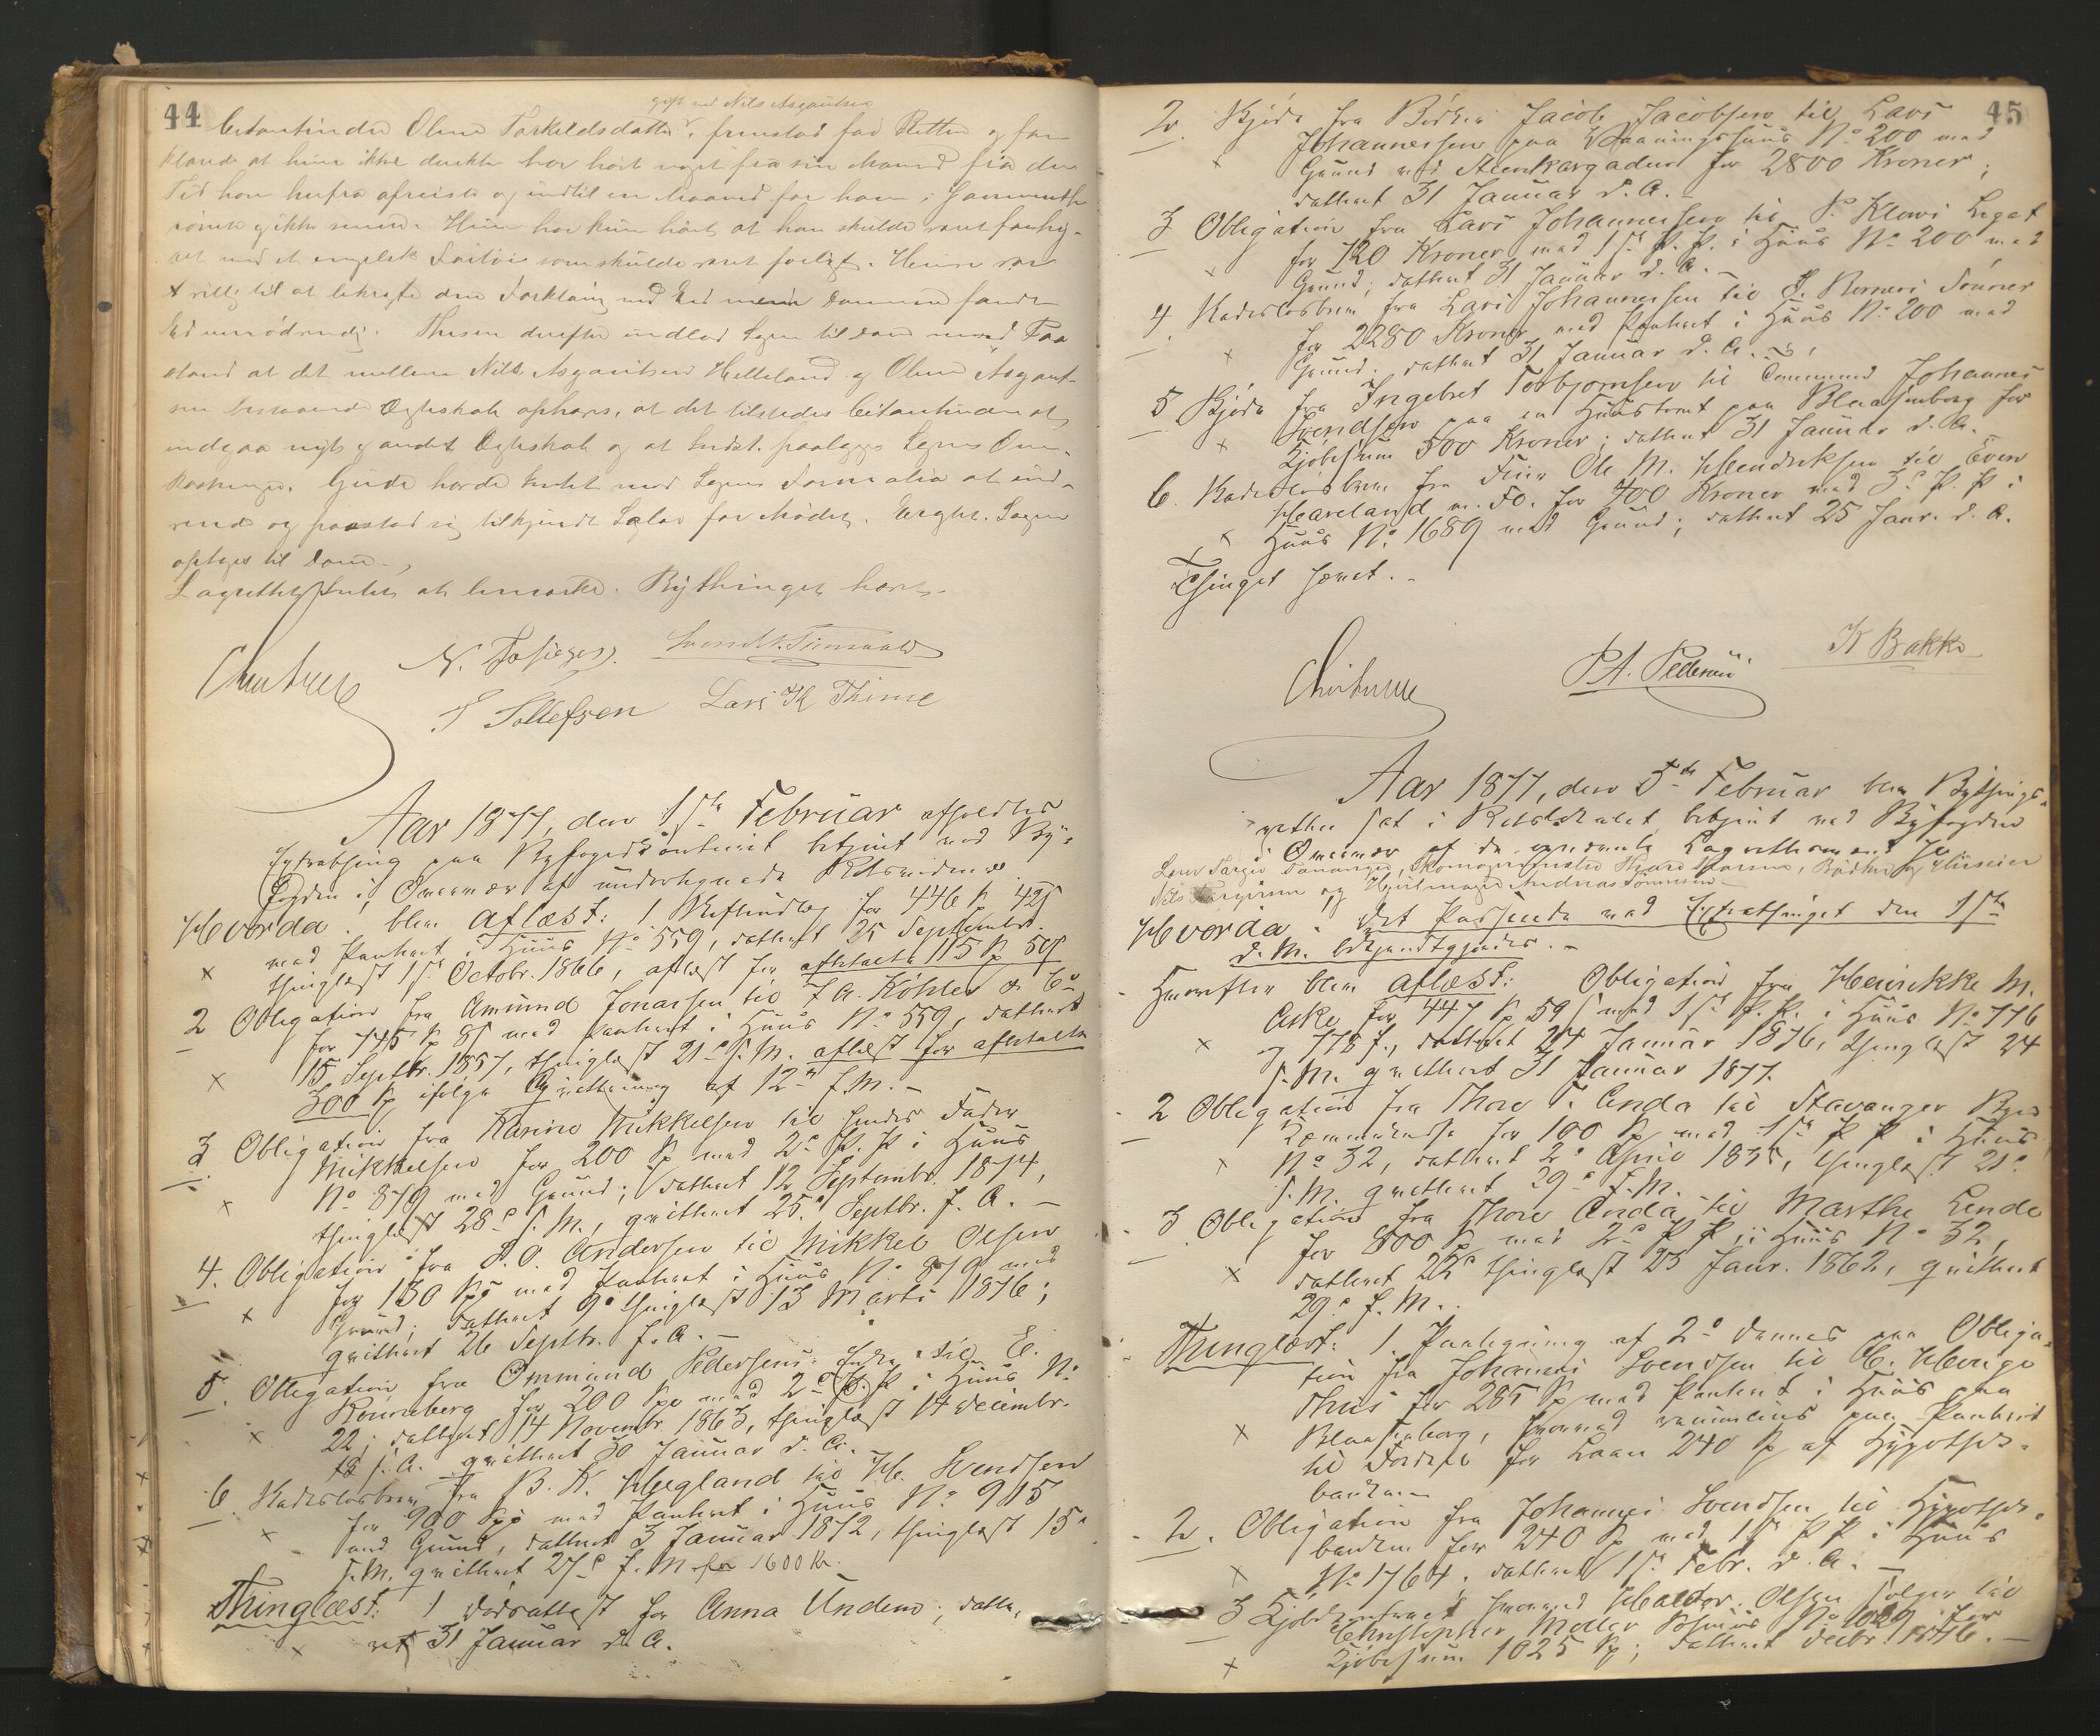 44
gift med Nils Asgautsen
Citantinden Oline Torkildsdatter fremstod for Retten og for-
klarede at hun ikke direkte har hørt noget fra sin Mand fra den
Tid han herfra afreiste og indtil en Maaned før han i
rømte og ikke senere. Hun har kun hørt at han skulde være forlig-
et med et engelsk Fartøi som skulde være forliist. Hun var
villig til at bekræfte den Forklaring med Ed men Dommeren fandt
Ed unødvendig. Thesen derefter indlod Sagen til Dom med Paa-
stand at det mellem Nils Asgautsen Helleland og Oline Asgaut-
sen bestaaende Ægteskab ophæves, at det tilstedes Citantinden at
indgaa nyt og andet Ægteskab og at Indst. paalægges Sagens Om-
kostninger. Gjude havde Intet mod Sagens Formalia at ind-
vende og paastod sig tilkjendt Salær for Mødet. Eragtet. Sagen
optages til Dom.
Lagrettet Intet at bemærke. Bythinget hævet.
N. Tosiesen. Svend N. Timraals
S Tollefsen Lars K Thime
Aar 1877, den 1ste Februar afholdtes
Extrathing paa Byfogedcontoiret betjent med By-
fogden i Overvær af undertegnede Retsvidner.
Hvorda blev aflæst: 1 Skifteudlæg for 446 Sp 42 s
med Panteret i Huus No 559, dateret 25 Septembr.
thinglæst 1ste Octobr. 1866, aflæst for afbetalte 115 Sp 59 s
2 Obligation fra Amund Jonassen til J. A. Köhler & Co
for 745 Sp 8 s med Panteret i Huus No 559, dateret
15 Septbr. 1857, thinglæst 21de s. M. aflæst for afbetalte
300 Sp ifølge Qvittering af 12te f. M. -
3 Obligation fra Karine Mikkelsen til hendes Fader
Mikkelsen for 200 Sp med 2den Pr. Pr i Huus
No 879 med Grund; dateret 12 Septembr. 1874,
thinglæst 28de s. M., qvitteret 25de Septbr. f. A. -
4. Obligation fra S. O. Andersen til Mikkel Olsen
for 130 Sp med Panteret i Huus No 879 med
Grund; dateret 9de thinglæst 13 Marts 1876;
qvitteret 26 Septbr. f. A. -
5. Obligation fra Ommund Pedersens Enke til E.
Rønneberg for 200 Sp med 2den Pr. Pr i Huus No
22; dateret 14 Novembr. 1863, thinglæst 14 Decembr.
s. A. qvitteret 30 Januar d. A.
6 Kadeslosbrev fra B. K. Hegland til H. Svendsen
for 900 Sp med Panteret i Huus No 915
med Grund, dateret 3 Januar 1872, thinglæst 15de
s. M. qvitteret 27de f. M for 1600 Kr.
Thinglæst: 1 Dødsattest for Anna Undem; date-
ret 31 Januar d. A.
45
2. Skjøde fra Bødker Jacob Jacobsen til Lars
Johannessen paa Vaaningshuus No 200 med
Grund ved Stenkargaden for 2800 Kroner;
dateret 31 Januar d. A. -
3 Obligation fra Lars Johannessen til P. Klows Legat
for 720 Kroner med 1ste Pr. Pr. i Huus No 200 med
Grund; dateret 31 Januar d. A. -
4. Kadeslosbrev fra Lars Johannessen til S. Berners Sønner
for 2280 Kroner med Panteret i Huus No 200 med
Grund. dateret 31 Januar d. A. -
5 Skjøde fra Ingebret Torbjørnsen til Ommund Johannes
Svendsen paa en Huustomt paa Blaasenborg for
Kjøbesum 500 Kroner; dateret 31 Januar d. A. -
6. Kadeslosbrev fra Frue Ole M. Hendriksen til Even
Haveland m. Fl. for 400 Kroner med 3de Pr. Pr i
Huus No 1689 med Grund; dateret 25 Janr. d. A.
Thinget hævet. -
P A. Pedersen K Bakke
Aar 1877, den 5te Februar blev Bythings-
retten sat i Retslokalet betjent med Byfogden
i Overvær af de opnævnte Lagrettesmænd
Nils og Hjulmager Andreas Tønnesen
Hvorda: Det Passerede ved Extrathinget den 1ste
d. M. bekjendtgjordes. -
Hvorefter blev aflæst: Obligation fra Henrikke M.
Aske for 447 Sp 59 s med 1ste Pr. Pr. i Huus No 776
og 778 f., dateret 24 Januar 1876, thinglæst 24
s. M. qvitteret 31 Januar 1877.
2 Obligation fra Thore T. Anda til Stavanger Byes
Kæmnerkasse for 100 Sp med 1ste Pr Pr i Huus
No 32, dateret 2de April 1835, thinglæst 21de
s. M. qvitteret 29de f. M.
3. Obligation fra Thore Anda til Marthe Lende
for 800 Sp med 2den Pr Pr i Huus No 32,
dateret 22de thinglæst 23 Janr. 1862, qvitteret
29de f. M.
Thinglæst: 1. Paategning af 2de Dennes paa Obliga-
tion fra Johannes Svendsen til C. Hauge
Thiis for 285 Sp med Panteret i Huus paa
Blaasenborg, hvorved renunceres paa Panteret
til Fordel for Laan 240 Sp af Hypothek-
banken.
2. Obligation fra Johannes Svendsen til Hypothek-
banken for 240 Sp med 1ste Pr Pr i Huus
No 1764. dateret 1ste Febr. d. A. -
3 Kjøbekontract hvorved Halder Olsen sælger til
Christopher Møller Huus No 1029 for
Kjøbesum 1025 Sp; dateret Decbr. 1876. -